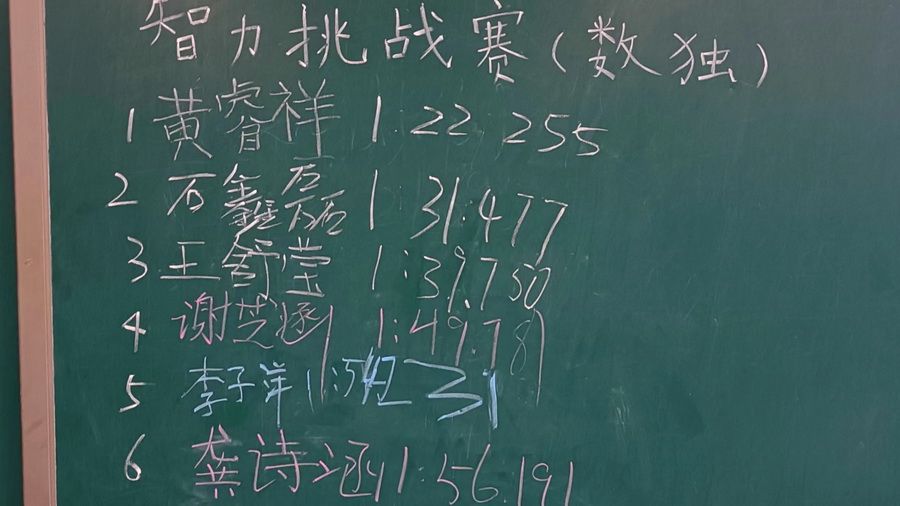 智力挑战赛(数独)
1 黄睿祥 1:22.255
2 石鑫磊 1:31.477
3 王舒莹 1:39.750
4 谢芝涵 1:49.781
5 李子萍
6 龚诗涵 1:56.191